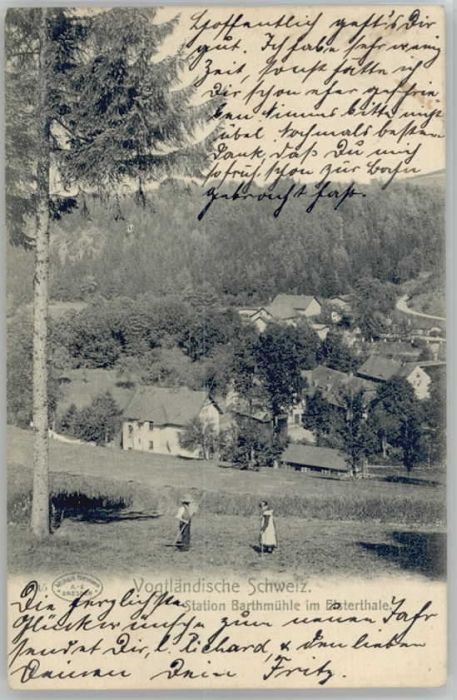 Hoffentlich geht's Dir
gut. Ich habe sehr wenig
Zeit, sonst hätte ich
Dir schon eher geschrie-
ben Nimms bitte nicht
übel Nochmals besten
Dank, daß Du mich
so früh schon zur Bahn
gebracht hast.
Vogtländische Schweiz.
Station Barthmühle im Elsterthale.
Die herzlichsten
Glückwünsche zum neuen Jahr
sendet Dir, l. Richard, & den lieben
Deinen Dein Fritz.